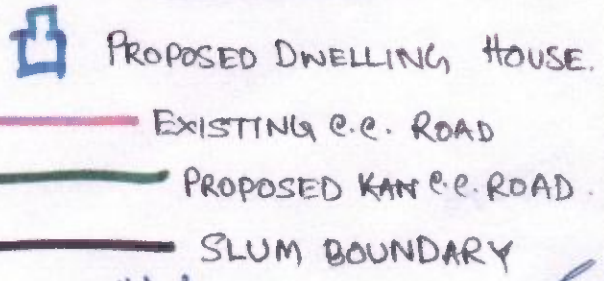 PROPOSED DWELLING HOUSE.
EXISTING C.C. ROAD
PROPOSED KAN C.C. ROAD.
SLUM BOUNDARY